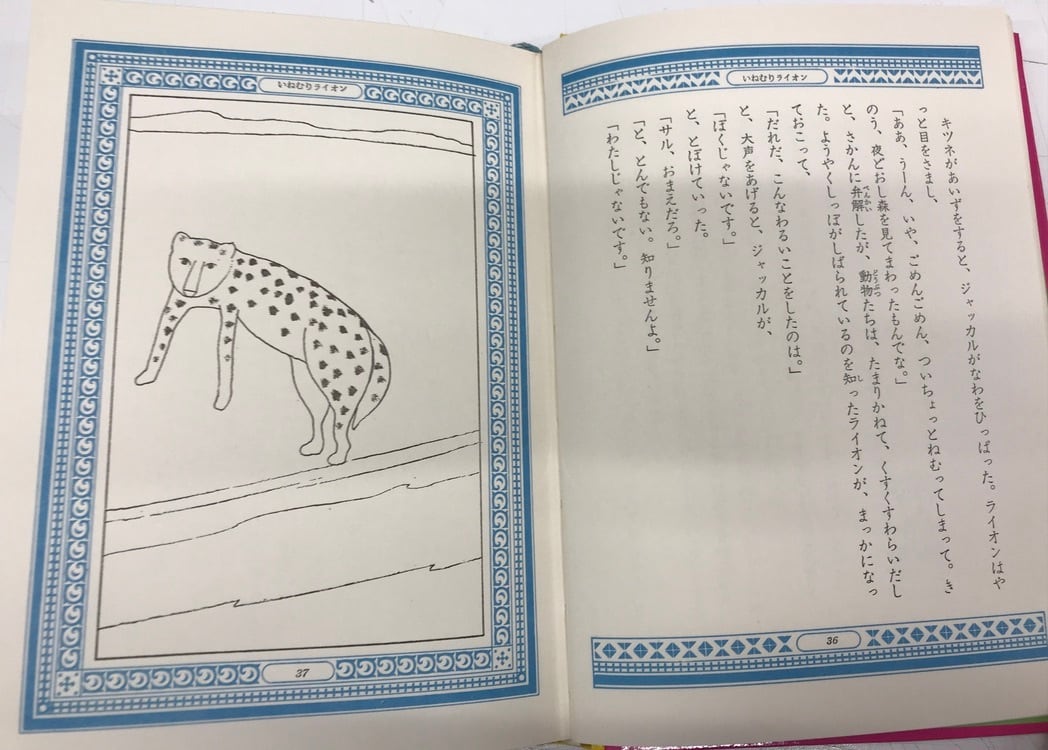 いねむりライオン
キツネがあいずをすると、ジャッカルがなわをひっぱった。ライオンはや
っと目をさまし、
「ああ、うーん、いや、ごめんごめん、ついちょっとねむってしまって。き
のう、夜どおし森を見てまわったもんでな。」
と、さかんに弁解したが、動物たちは、たまりかねて、くすくすわらいだし
た。ようやくしっぽがしばられているのを知ったライオンが、まっかになっ
ておこって、
「だれだ、こんなわるいことをしたのは。」
と、大声をあげると、ジャッカルが、
「ぼくじゃないです。」
と、とぼけていった。
「サル、おまえだろ。」
「と、とんでもない。知りませんよ。」
「わたしじゃないです。」
36
いねむりライオン
37